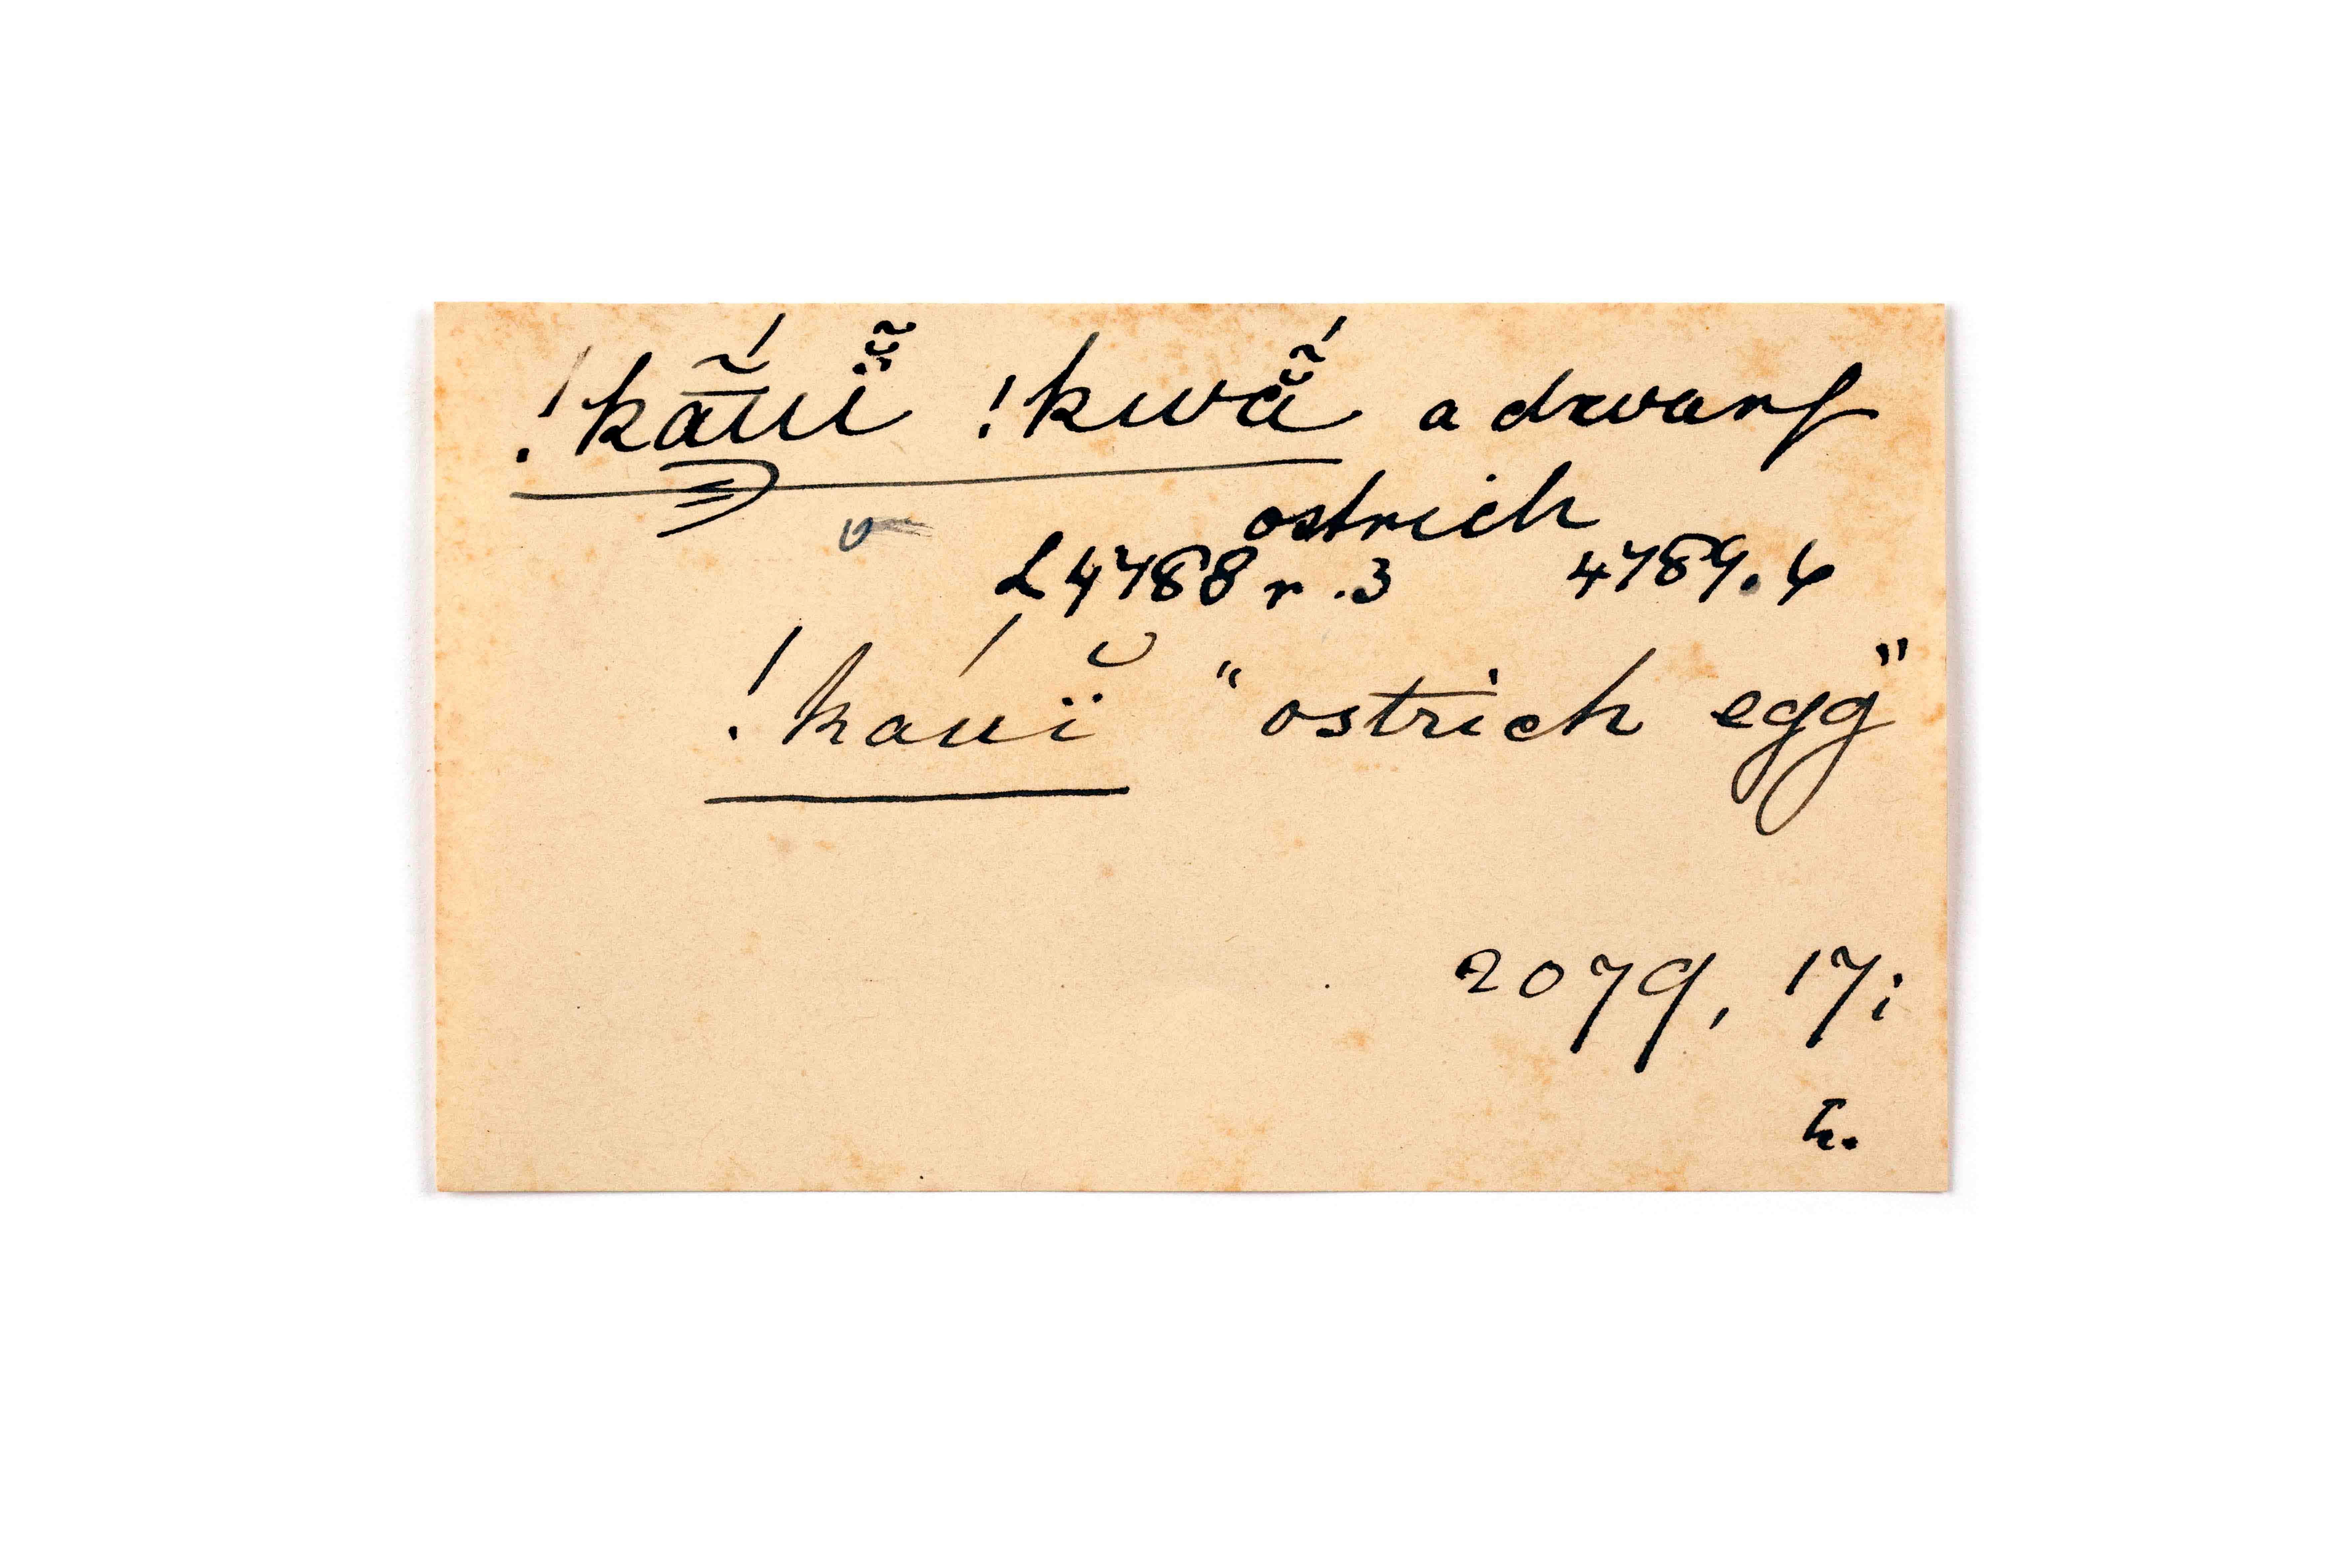 !kā̃́uï̆̃ !kwä̆̃́ a dwarf
ostrich
L4788 r.3 4789.6
!káuï̆ "ostrich egg"
2079, 17;
h.